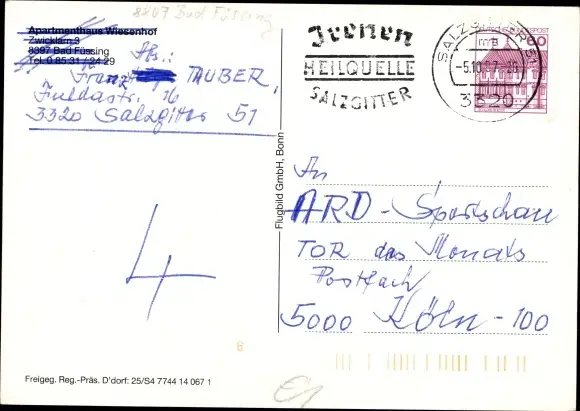 8207 Bad Füssing
Apartmenthaus Wiesenhof
Zwicklarn 3
8397 Bad Füssing
Tel. 0 85 31 / 24 29
Abs.:
Franz TAUBER,
Fuldastr. 16
3320 Salzgitter 51
Heilquelle
SALZGITTER
SALZGITTER 1
-5.10.
mb
3320
60
Flugbild GmbH, Bonn
An
ARD - Sportschau
TOR des Monats
Postfach
5000 Köln - 100
4
8
Freigeg. Reg.-Präs. D'dorf: 25/S4 7744 14 067 1
€1